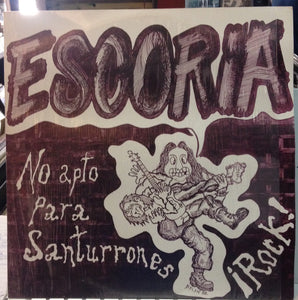 ESCORIA
No apto
Para
Santurrones
¡Rock!